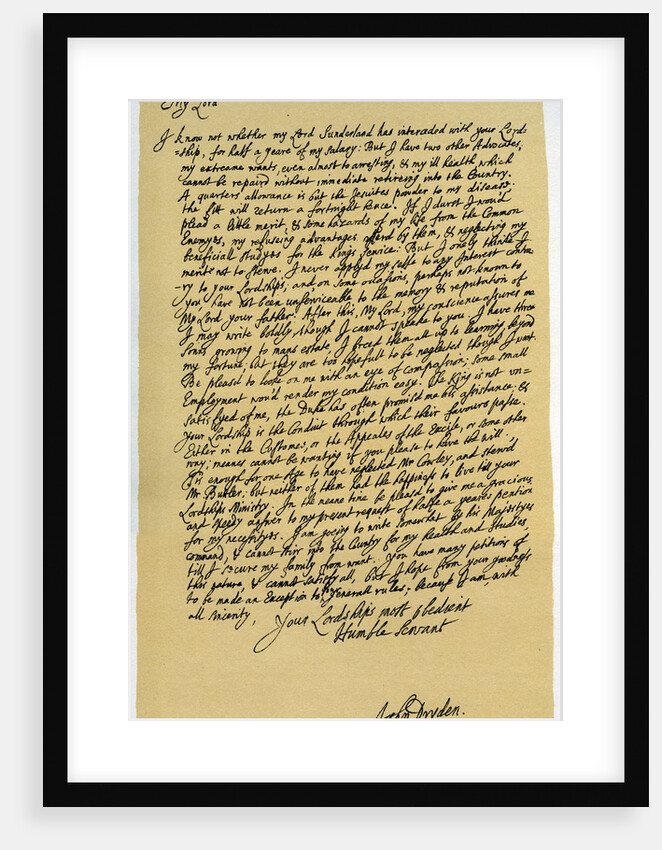 My Lord
I know not whether my Lord Sunderland has interceded with your Lord=
=ship, for half a yeare of my salary: But I have two other Advocates,
my extreame wants, even almost to arresting, & my ill health, which
cannot be repaird without immediate retireing into the Country.
A quarters allowance is but the Jesuites powder to my disease;
the fitt will return a fortnight hence. If I durst I wou'd
plead a little merit, & some hazards of my life from the Common
Enemyes, my refuseing advantages offerd by them, & neglecting my
beneficiall studyes for the King's service: But I onely thinke I
merit not to sterve. I never applyd my selfe to any Interest contra=
=ry to your Lordships; and, on some occasions, perhaps not known to
you, have not been unserviceable to the memory & reputation of
My Lord your father. After this, My Lord, my conscience assures me
I may write boldly, though I cannot speake to you. I have three
Sonns growing to mans estate, I breed them all up to learning, beyond
my fortune; but they are too hopefull to be neglected though I want.
Be pleasd to looke on me with an eye of compassion; some small
Employment wou'd render my condition easy. The King is not un=
satisfyed of me, the Duke has often promisd me his assistance; &
Your Lordship is the Conduit through which their favours passe.
Either in the Customes, or the Appeales of the Excise, or some other
way; means cannot be wanting if you please to have the will.
Tis enough for one Age to have neglected Mr Cowley, and sterv'd
Mr Buttler; but neither of them had the happiness to live till your
Lordships Ministry. In the meane time be pleasd to give me a gracious
and speedy answer to my present request of halfe a yeares pention
for my necessityes. I am going to write somewhat by his Majestyes
command, & cannot stirr into the Country for my health and studies,
till I secure my family from want. You have many petitions of
this nature, & cannot satisfy all, but I hope from your goodness
to be made an Exception to your generall rules; because I am, with
all sincerity,
Your Lordships most obedient
Humble Servant
John Dryden.